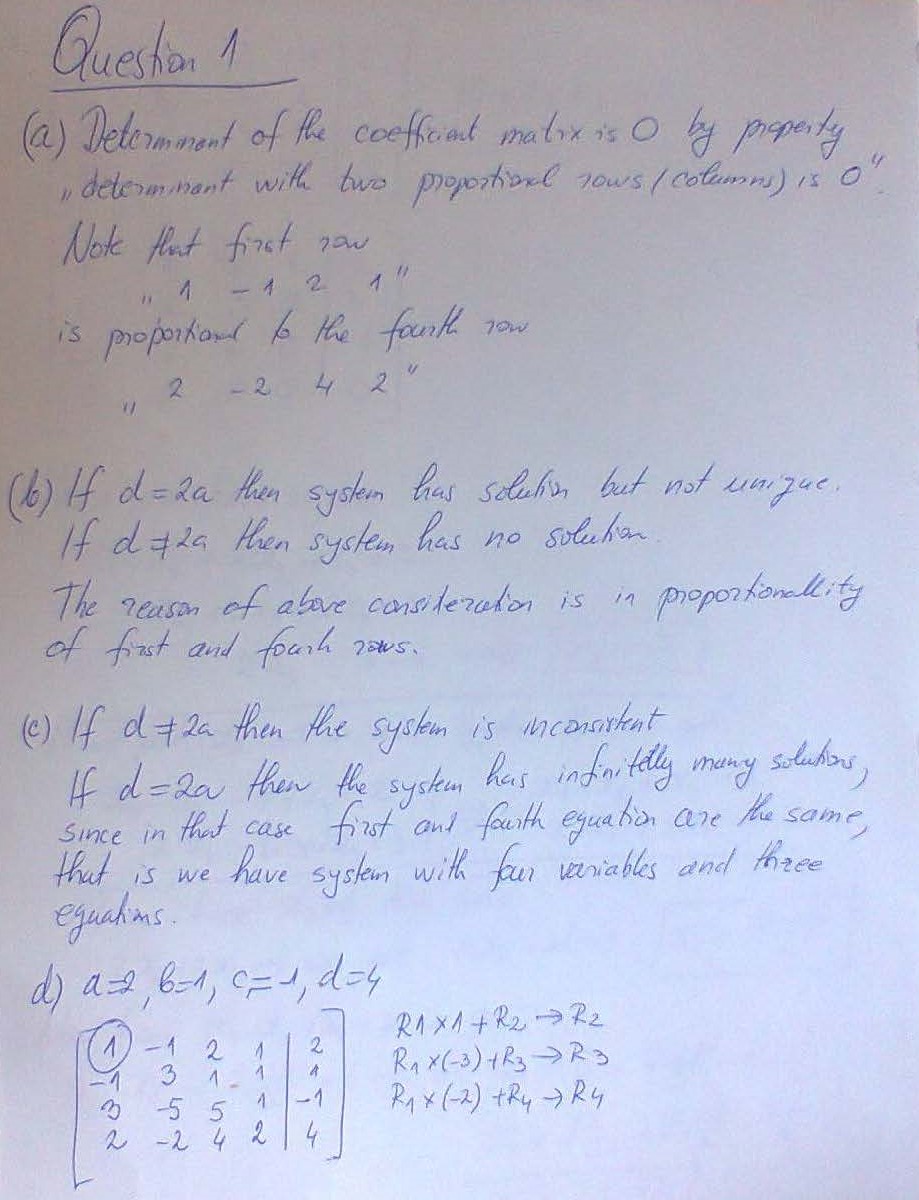 Question 1
(a) Determinant of the coefficient matrix is 0 by property
„determinant with two proportional rows/(columns) is 0".
Note that first row
„ 1 -1 2 1 "
is proportional to the fourth row
„ 2 -2 4 2 "
(b) If d=2a then system has solution but not unique.
If d≠2a then system has no solution.
The reason of above consideration is in proportionallity
of first and fourh rows.
(c) If d≠2a then the system is inconsistent
If d=2a then the system has infinitelly many solutions,
since in that case first and fourth equation are the same,
that is we have system with four variables and three
equations.
d) a=2, b=1, c=-1, d=4
1 -1 2 1 | 2 R1×1+R2→R2
-1 3 1 1 | 1 R1×(-3)+R3→R3
3 -5 5 1 | -1 R1×(-2)+R4→R4
2 -2 4 2 | 4